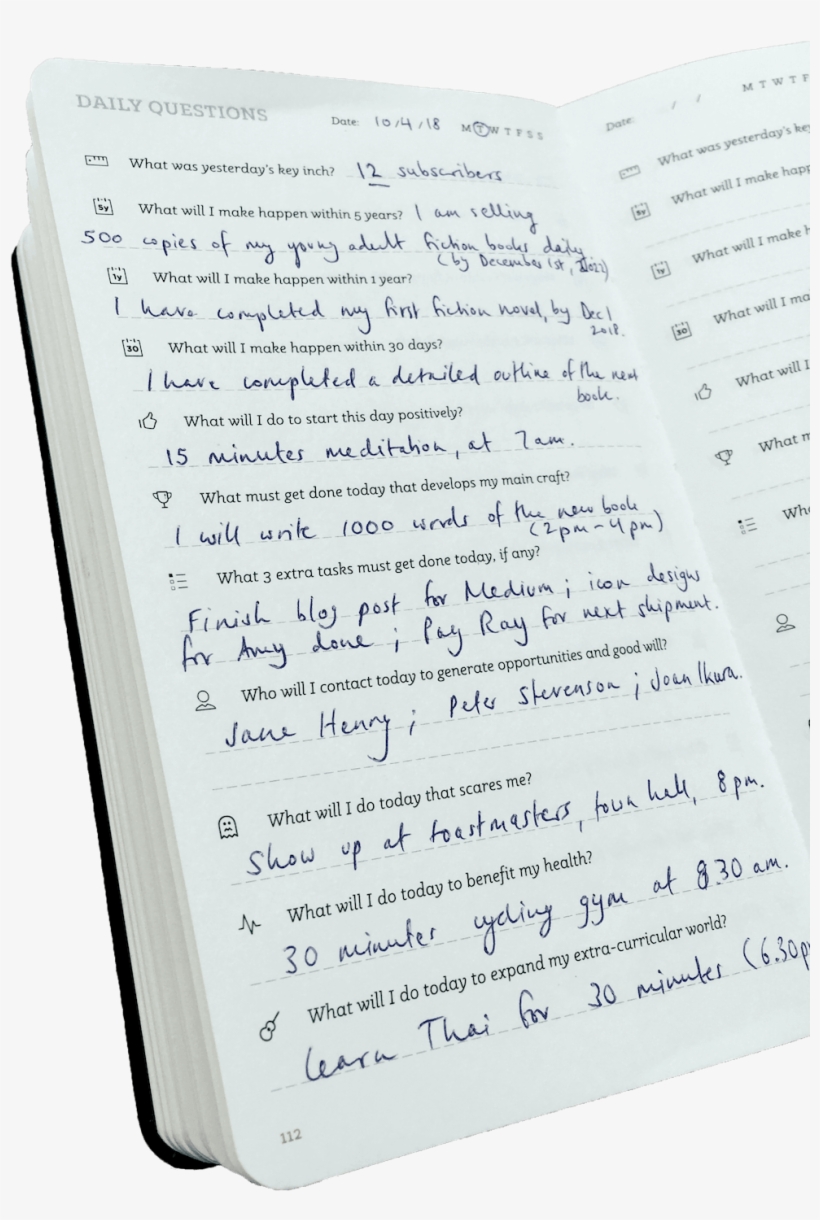 DAILY QUESTIONS
Date: 10/4/18 M T W T F S S
What was yesterday's key inch? 12 subscribers
5y What will I make happen within 5 years? I am selling
500 copies of my young adult fiction books daily
(by December 1st, 2022)
1y What will I make happen within 1 year?
I have completed my first fiction novel, by Dec 1
2018.
30 What will I make happen within 30 days?
I have completed a detailed outline of the next
book.
What will I do to start this day positively?
15 minutes meditation, at 7am.
What must get done today that develops my main craft?
I will write 1000 words of the new book
(2pm-4pm)
What 3 extra tasks must get done today, if any?
Finish blog post for Medium; icon designs
for Amy done; Pay Ray for next shipment.
Who will I contact today to generate opportunities and good will?
Jane Henry; Peter Stevenson; Joan Ikura.
What will I do today that scares me?
Show up at toastmasters, town hall, 8pm.
What will I do today to benefit my health?
30 minutes cycling gym at 8.30 am.
What will I do today to expand my extra-curricular world?
learn Thai for 30 minutes (6.30p
112
Date: / / M T W T F
What was yesterday's key
5y What will I make happ
1y What will I make h
30 What will I ma
What will I
What m
Wh